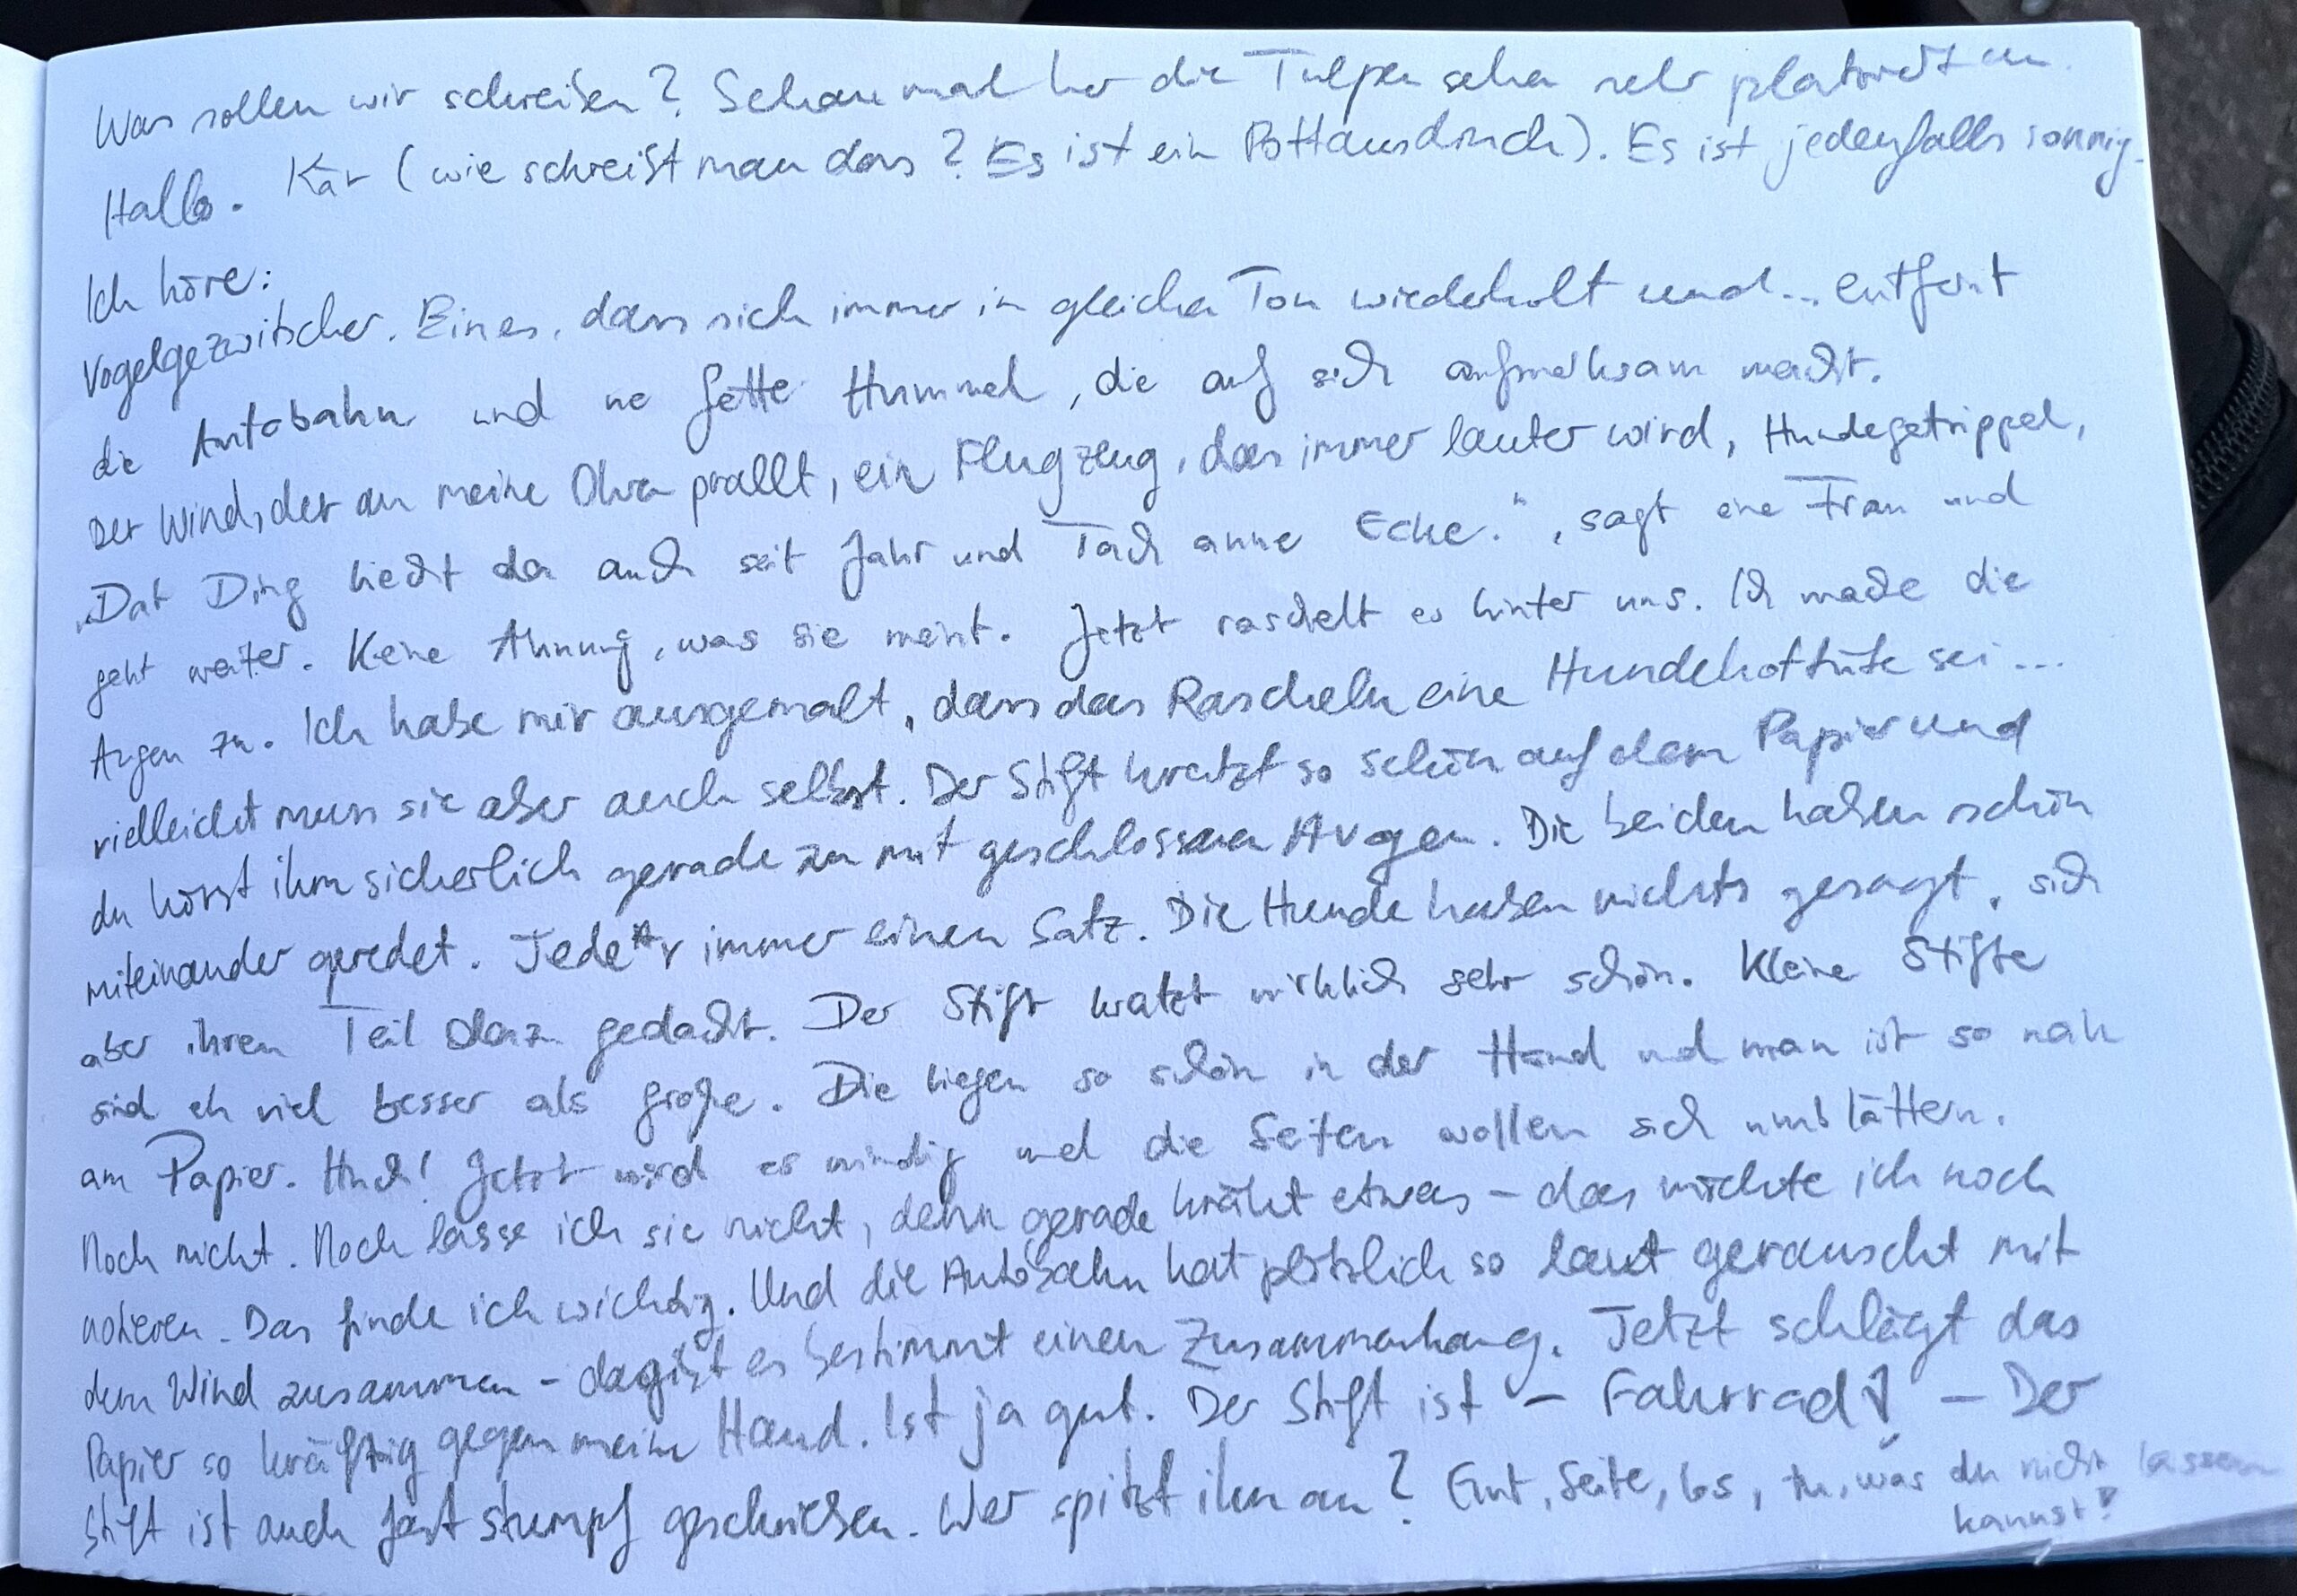 Was sollen wir schreiben? Schau mal her die Tulpen sehen sehr platziert aus.
Hallo. Kär (wie schreibt man das? Es ist ein Pottausdruck). Es ist jedenfalls sonnig.
Ich höre:
Vogelgezwitscher. Eines, dass sich immer in gleichen Ton wiederholt und... entfernt
die Autobahn und ne fette Hummel, die auf sich aufmerksam macht.
Der Wind, der an meine Ohren prallt, ein Flugzeug, das immer lauter wird, Hundegetrippel,
„Dat Ding liecht da auch seit Jahr und Tach anne Ecke.", sagt eine Frau und
geht weiter. Keine Ahnung, was sie meint. Jetzt raschelt es hinter uns. Ich mache die
Augen zu. Ich habe mir ausgemalt, dass das Rascheln eine Hundekottüte sei...
vielleicht muss sie aber auch selbst. Der Stift kratzt so schön auf dem Papier und
du hörst ihm sicherlich gerade zu mit geschlossenen Augen. Die beiden haben schön
miteinander geredet. Jede*r immer einen Satz. Die Hunde haben nichts gesagt, sich
aber ihren Teil dazu gedacht. Der Stift kratzt wirklich sehr schön. Kleine Stifte
sind eh viel besser als große. Die liegen so schön in der Hand und man ist so nah
am Papier. Huch! Jetzt wird es windig und die Seiten wollen sich umblättern.
Noch nicht. Noch lasse ich sie nicht, denn gerade kräht etwas – das möchte ich noch
notieren. Das finde ich wichtig. Und die Autobahn hat plötzlich so laut gerauscht mit
dem Wind zusammen – da gibt es bestimmt einen Zusammenhang. Jetzt schlägt das
Papier so kräftig gegen meine Hand. Ist ja gut. Der Stift ist – Fahrrad! – Der
Stift ist auch fast stumpf geschrieben. Wer spitzt ihn an? Gut, Seite, los, tu, was du nicht lassen
kannst!